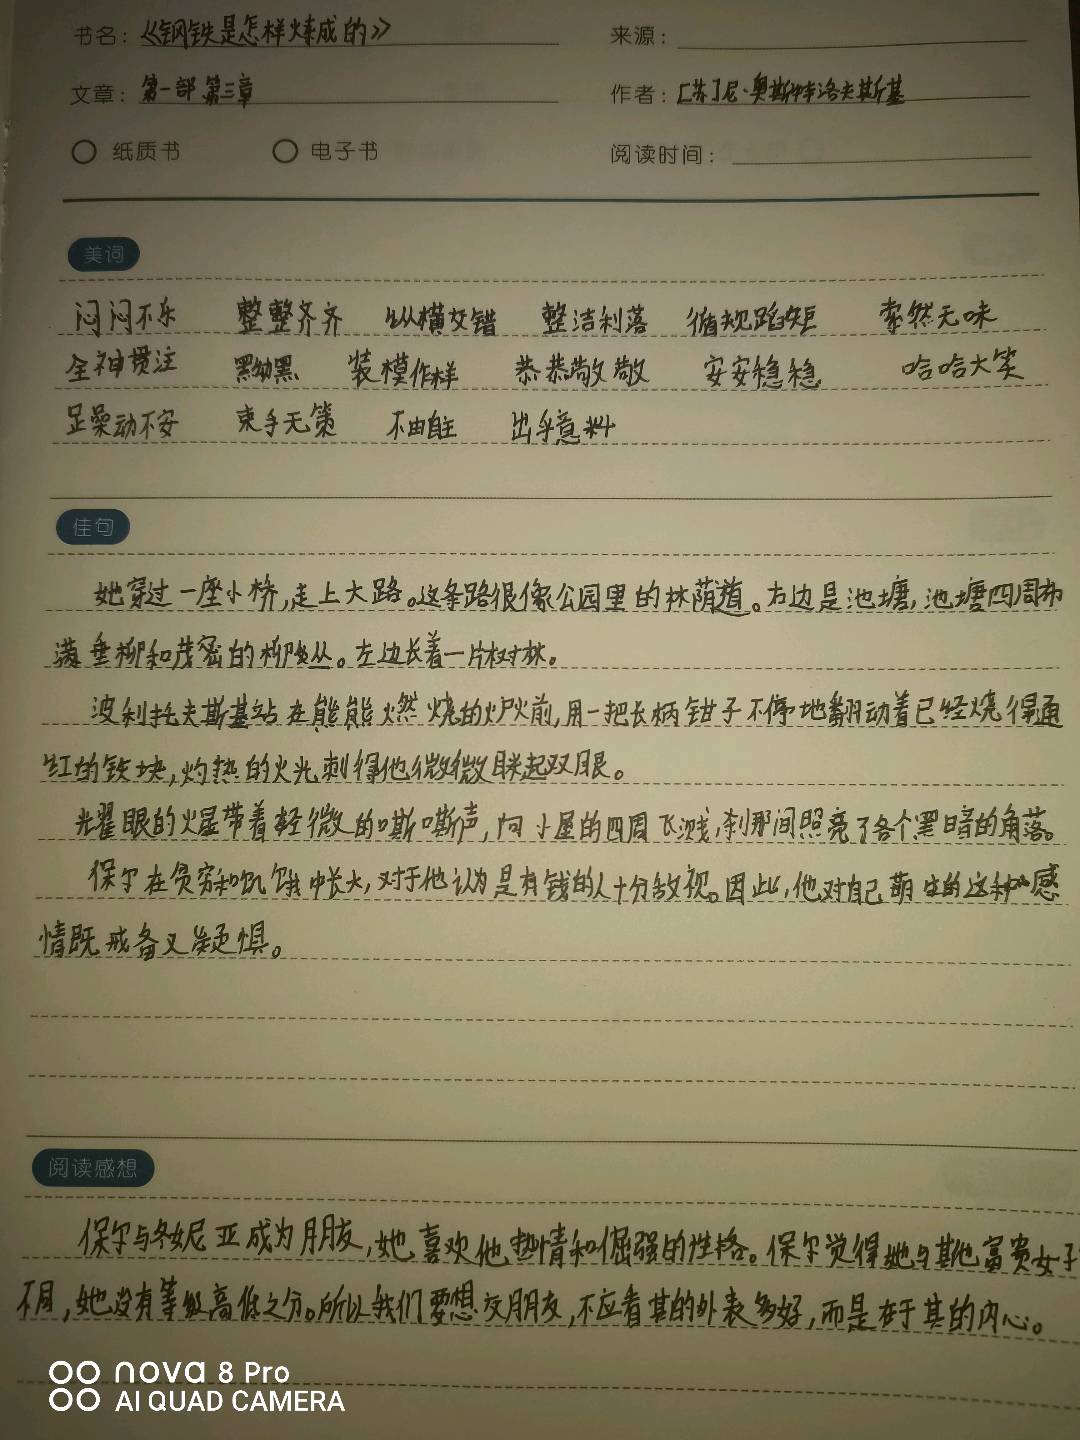 书名：《钢铁是怎样炼成的》 来源：
文章：第一部第三章 作者：[苏]尼·奥斯特洛夫斯基
纸质书 电子书 阅读时间：
美词
闷闷不乐 整整齐齐 纵横交错 整洁利落 循规蹈矩 索然无味
全神贯注 黑黝黝 装模作样 恭恭敬敬 安安稳稳 哈哈大笑
躁动不安 束手无策 不由自主 出乎意料
佳句
她穿过一座小桥，走上大路。这条路很像公园里的林荫道。右边是池塘，池塘四周布
满垂柳和茂密的柳丛。左边长着一片树林。
波利托夫斯基站在熊熊燃烧的炉火前，用一把长柄钳子不停地翻动着已经烧得通
红的铁块，灼热的火光刺得他微微眯起双眼。
耀眼的火星带着轻微的嘶嘶声，向小屋的四周飞溅，刹那间照亮了各个黑暗的角落。
保尔在贫穷和饥饿中长大，对于他认为是有钱的人十分敌视。因此，他对自己萌生的这种感
情既戒备又疑惧。
阅读感想
保尔与冬妮亚成为朋友，她喜欢他热情和倔强的性格。保尔觉得她与其他富贵女子
不同，她没有等级高低之分。所以我们要想交朋友，不应看其的外表多好，而是在于其的内心。
nova 8 Pro
AI QUAD CAMERA